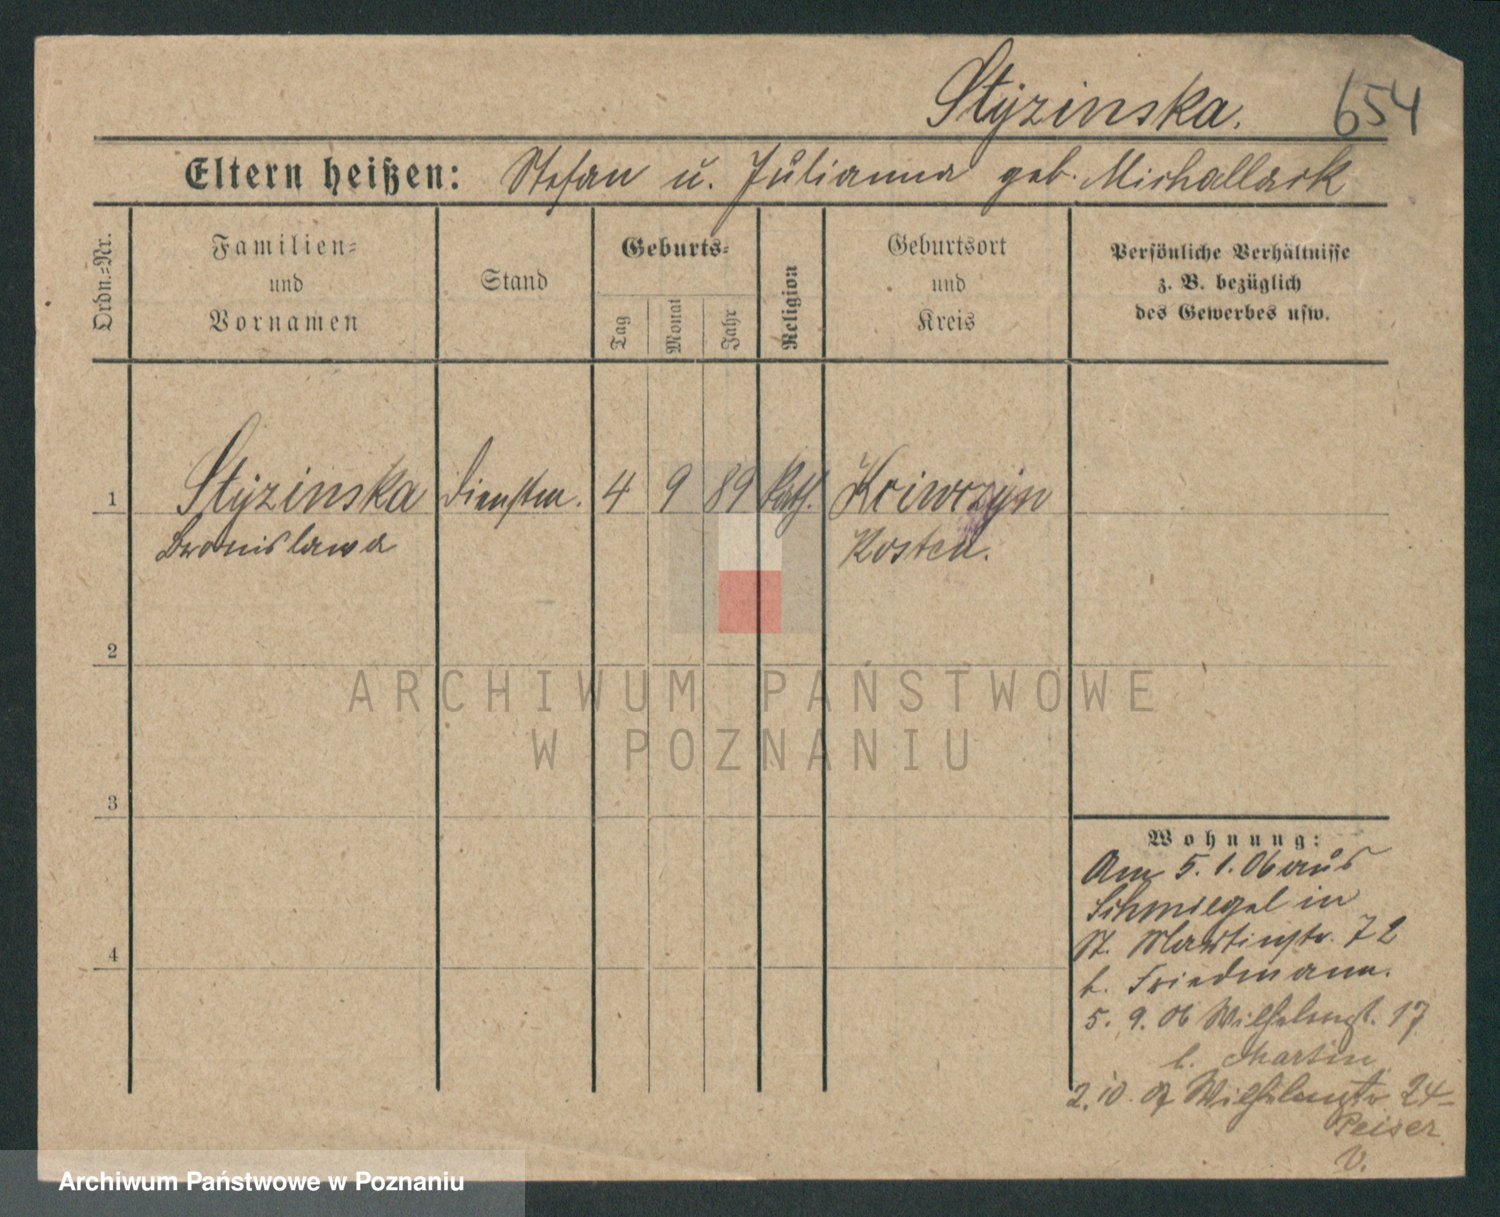 Styzinska. 654
Eltern heißen: Stefan u. Julianna geb. Michallack
Ordn.=Nr.
Familien=
und
Vornamen
Stand
Geburts=
Tag
Monat
Jahr
Religion
Geburtsort
und
Kreis
Persönliche Verhältnisse
z. B. bezüglich
des Gewerbes usw.
1 Styzinska Dienstm. 4 9 89 kath. Kriwczyn
Bronislawa Kosten.
2
ARCHIWUM PAŃSTWOWE
W POZNANIU
3
Wohnung:
Am 5.1.06 aus
Schmiegel in
St. Martinstr. 72
b. Friedmann.
4
5. 9. 06 Wilhelmst. 17
b. Martin
2.10. 07 Wilhelmstr. 24
Peiser
V.
Archiwum Państwowe w Poznaniu